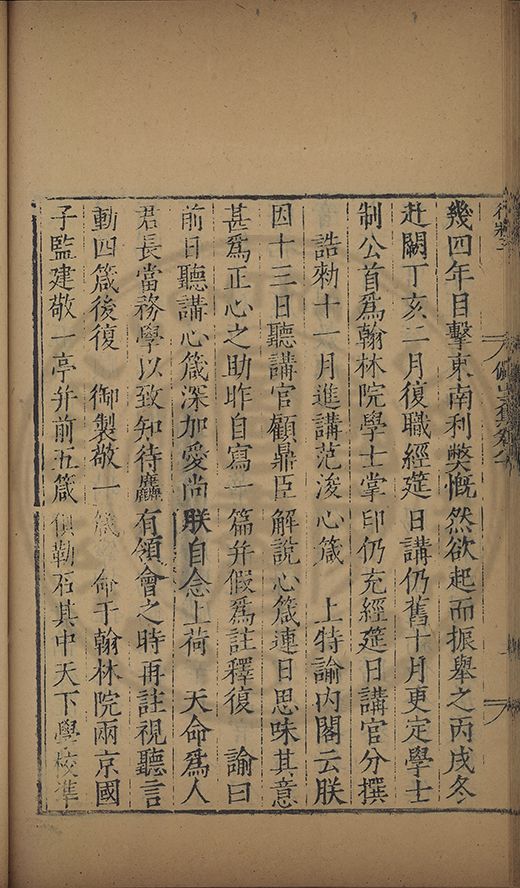 幾四年目擊東南利獘慨然欲起而振舉之丙戌冬
赴闕丁亥二月復職經筵日講仍舊十月更定學士
制公首爲翰林院學士掌印仍充經筵日講官分撰
誥勑十一月進講范浚心箴　上特諭內閣云朕
因十三日聽講官顧鼎臣解說心箴連日思味其意
甚爲正心之助昨自寫一篇并假爲註釋復　諭曰
前日聽講心箴深加愛尚朕自念上荷　天命爲人
君長當務學以致知待麤有領會之時再註視聽言
動四箴後復　御製敬一箴　命于翰林院兩京國
子監建敬一亭并前五箴俱勒石其中天下學校準